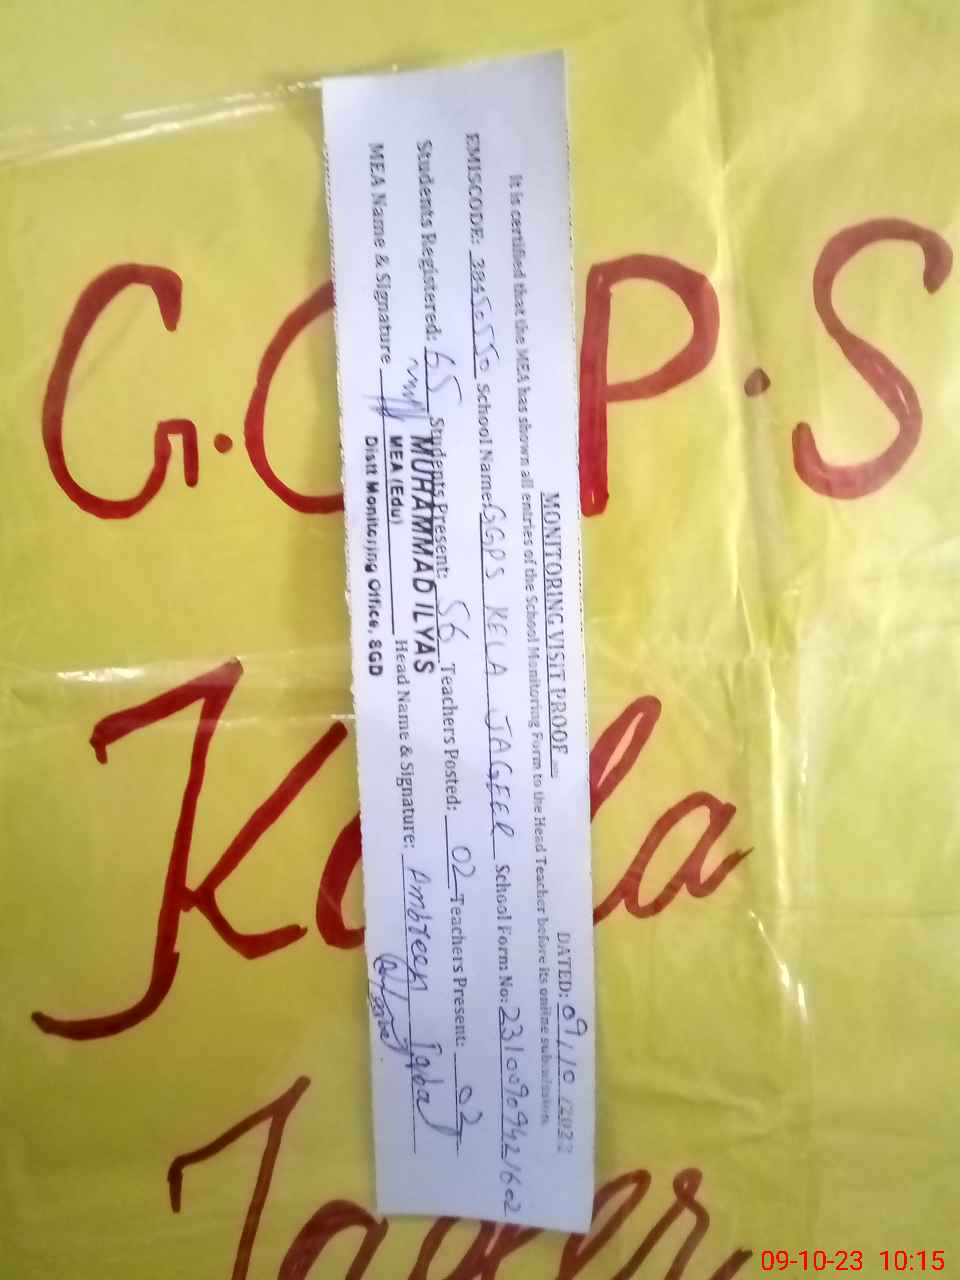 G.G.P.S
Kela
Jageer
MONITORING VISIT PROOF
DATED: 09/10/2022
It is certified that the MEA has shown all entries of the School Monitoring Form to the Head Teacher before its online submission.
EMISCODE: 38450550 School Name: GGPS KELA JAGEER School Form No: 2310090941602
Students Registered: 65 Students Present: 56 Teachers Posted: 02 Teachers Present: 02
MEA Name & Signature Head Name & Signature: Ambreen Iqbal
MUHAMMAD ILYAS
MEA (Edu)
Distt Monitoring Office, SGD
09-10-23 10:15